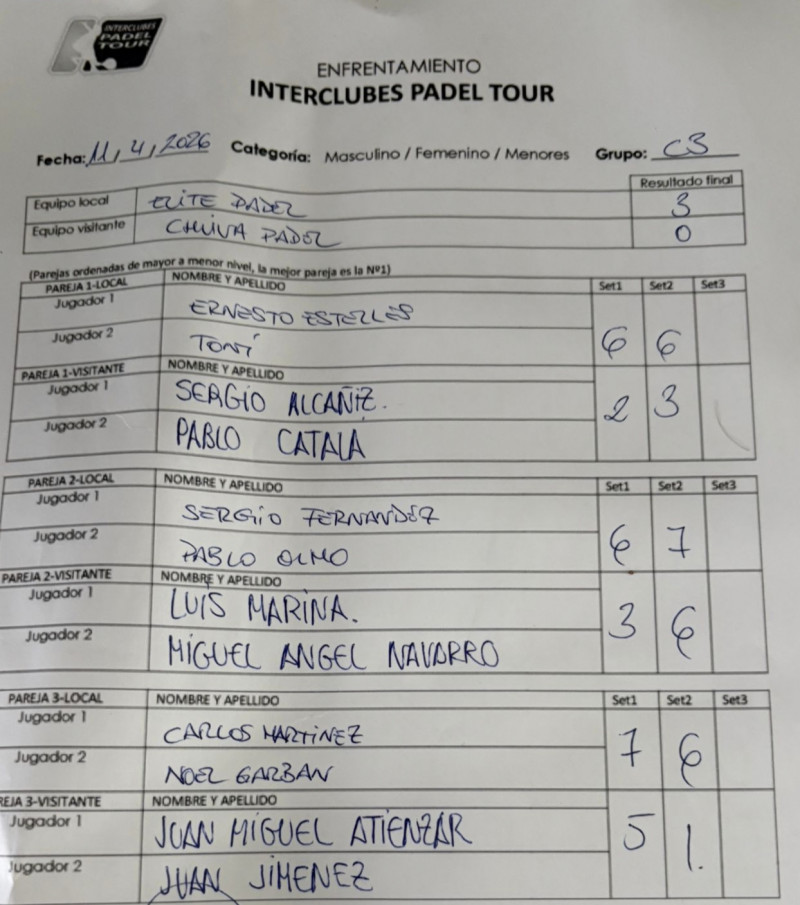 INTERCLUBES
PADEL
TOUR
ENFRENTAMIENTO
INTERCLUBES PADEL TOUR
Fecha: 11, 4, 2026 Categoría: Masculino / Femenino / Menores Grupo: C3
Resultado final
Equipo local ELITE PADEL 3
Equipo visitante CHIVA PADEL 0
(Parejas ordenadas de mayor a menor nivel, la mejor pareja es la Nº1)
PAREJA 1-LOCAL NOMBRE Y APELLIDO Set1 Set2 Set3
Jugador 1 ERNESTO ESTELLES
Jugador 2 TONI 6 6
PAREJA 1-VISITANTE NOMBRE Y APELLIDO
Jugador 1 SERGIO ALCAÑIZ. 2 3
Jugador 2 PABLO CATALA
PAREJA 2-LOCAL NOMBRE Y APELLIDO Set1 Set2 Set3
Jugador 1 SERGIO FERNANDEZ
Jugador 2 PABLO OLMO 6 7
PAREJA 2-VISITANTE NOMBRE Y APELLIDO
Jugador 1 LUIS MARINA. 3 6
Jugador 2 MIGUEL ANGEL NAVARRO
PAREJA 3-LOCAL NOMBRE Y APELLIDO Set1 Set2 Set3
Jugador 1 CARLOS MARTINEZ 7 6
Jugador 2 NOEL GARBAN
REJA 3-VISITANTE NOMBRE Y APELLIDO
Jugador 1 JUAN MIGUEL ATIENZAR 5 1.
Jugador 2 JUAN JIMENEZ